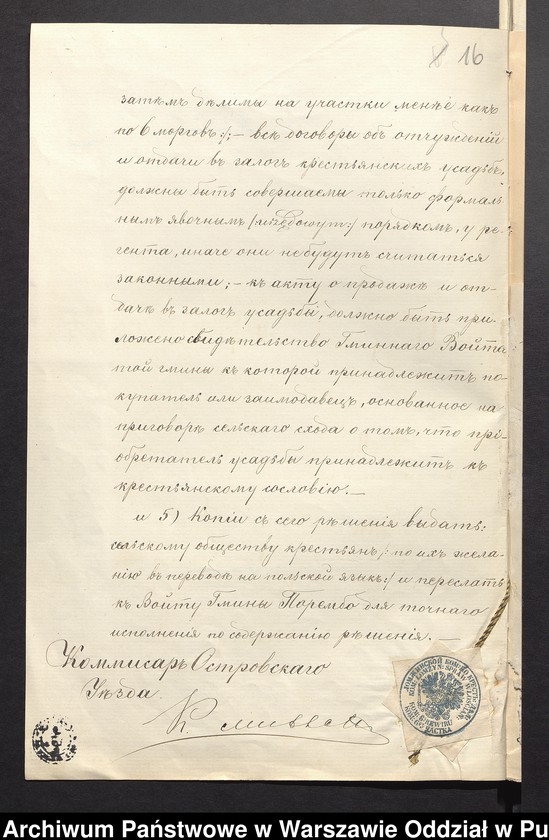 16
затѣмъ дѣлимы на участки менѣе какъ
по 6 морговъ:/; — всѣ договоры объ отчужденій
и отдачи въ залогъ крестьянскихъ усадьбъ,
должны быть совершаемы только формаль
нымъ явочнымъ /: порядкомъ, у ре-
гента, иначе они небудутъ считаться
законными; — къ акту о продажѣ и от-
дачѣ въ залогъ усадьбы, должно быть при-
ложено свидѣтельство Гминнаго Войта
той гмины къ которой принадлежитъ по-
купатель или заимодавецъ, основанное на
приговорѣ сельскаго схода о томъ, что прі-
обретатель усадьбы принадлежитъ къ
крестьянскому сословію. —
и 5) Копіи съ сего рѣшенія выдать:
сельскому обществу крестьянъ /: по ихъ жела-
нію въ переводѣ на польской языкъ:/ и переслать
къ Войту Гмины Порембо для точнаго
исполненія по содержанію рѣшенія. —
Коммисаръ Островскаго
Уѣзда.
Archiwum Państwowe w Warszawie Oddział w Pu